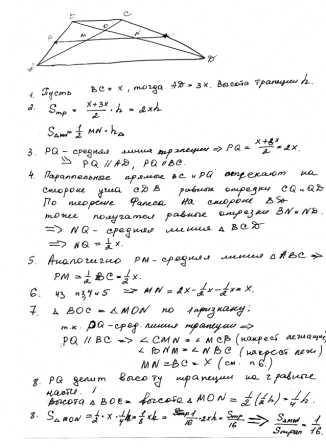 B C
P M O N
A D
1. Пусть BC = x, тогда AD = 3x. Высота трапеции h.
2. Sтр = (x+3x)/2 · h = 2xh
SΔMON = 1/2 MN · hΔ
3. PQ - средняя линия трапеции ⇒ PQ = (x+3x)/2 = 2x.
⇒ PQ ∥ AD, PQ ∥ BC.
4. Параллельные прямые BC и PQ отсекают на
стороне угла CDB равные отрезки CQ и QD
По теореме Фалеса на стороне BD
тоже получатся равные отрезки BN и ND.
⇒ NQ - средняя линия Δ BCD
⇒ NQ = 1/2 x.
5. Аналогично PM - средняя линия Δ ABC ⇒
PM = 1/2 BC = 1/2 x.
6. из п3,4 и 5 ⇒ MN = 2x - 1/2 x - 1/2 x = x.
7. Δ BOC = Δ MON по 1 признаку:
т.к. PQ - сред. линия трапеции ⇒
PQ ∥ BC ⇒ ∠CMN = ∠MCB (накрест лежащие)
∠BNM = ∠NBC (накрест леж.)
MN = BC = x (см. п6.)
8. PQ делит высоту трапеции на 2 равные
части.
высота Δ BOC = высота Δ MON = 1/2 (1/2 h) = 1/4 h.
8. SΔMON = 1/2 · x · 1/4 h = 1/8 xh = 1/16 · 2xh = Sтр/16 ⇒ SΔMON/Sтрап = 1/16.